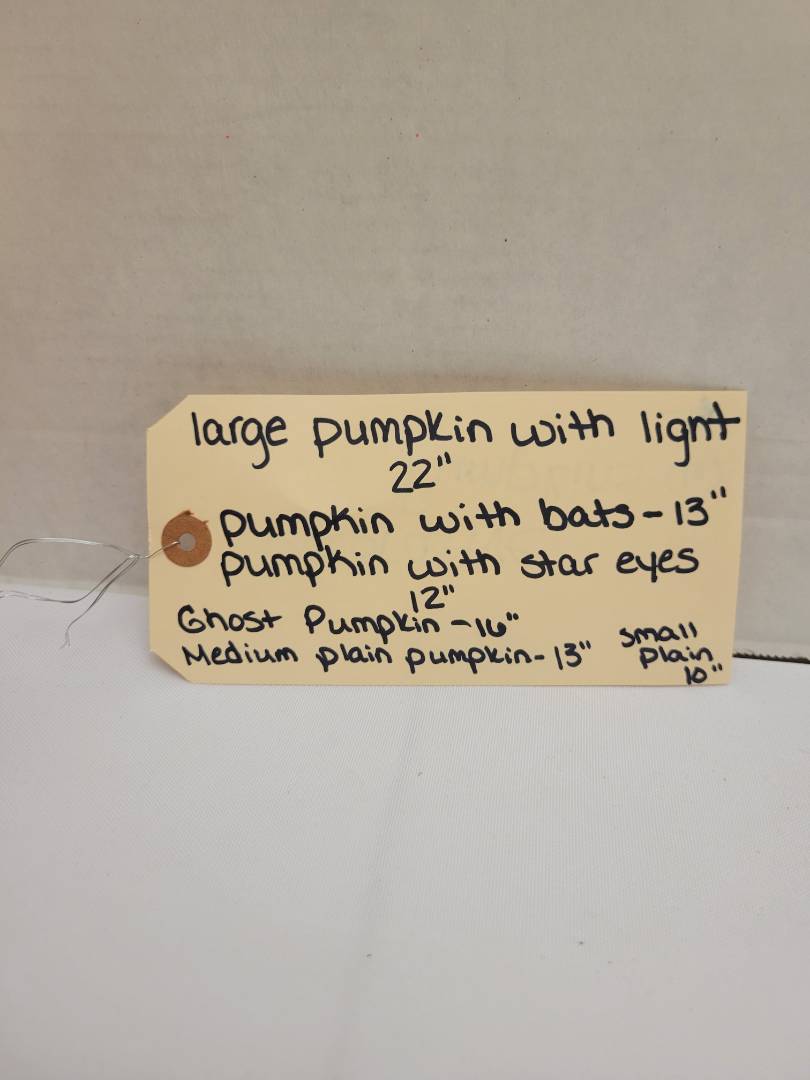 large pumpkin with light
22"
pumpkin with bats - 13"
pumpkin with star eyes
12"
Ghost Pumpkin - 16"
Medium plain pumpkin - 13"
small
plain
10"